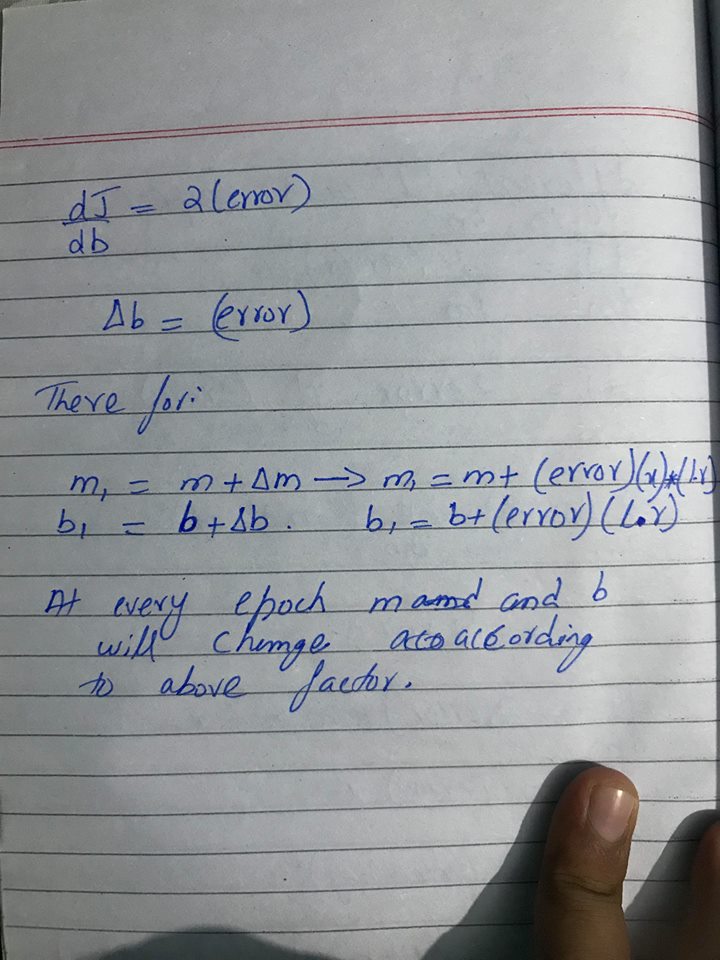 dJ/db = 2(error)
Δb = (error)
There for:
m₁ = m + Δm → m₁ = m + (error)(x)*(L.r)
b₁ = b + Δb. b₁ = b + (error)(L.r)
At every epoch m and and b
will change acc according
to above factor.